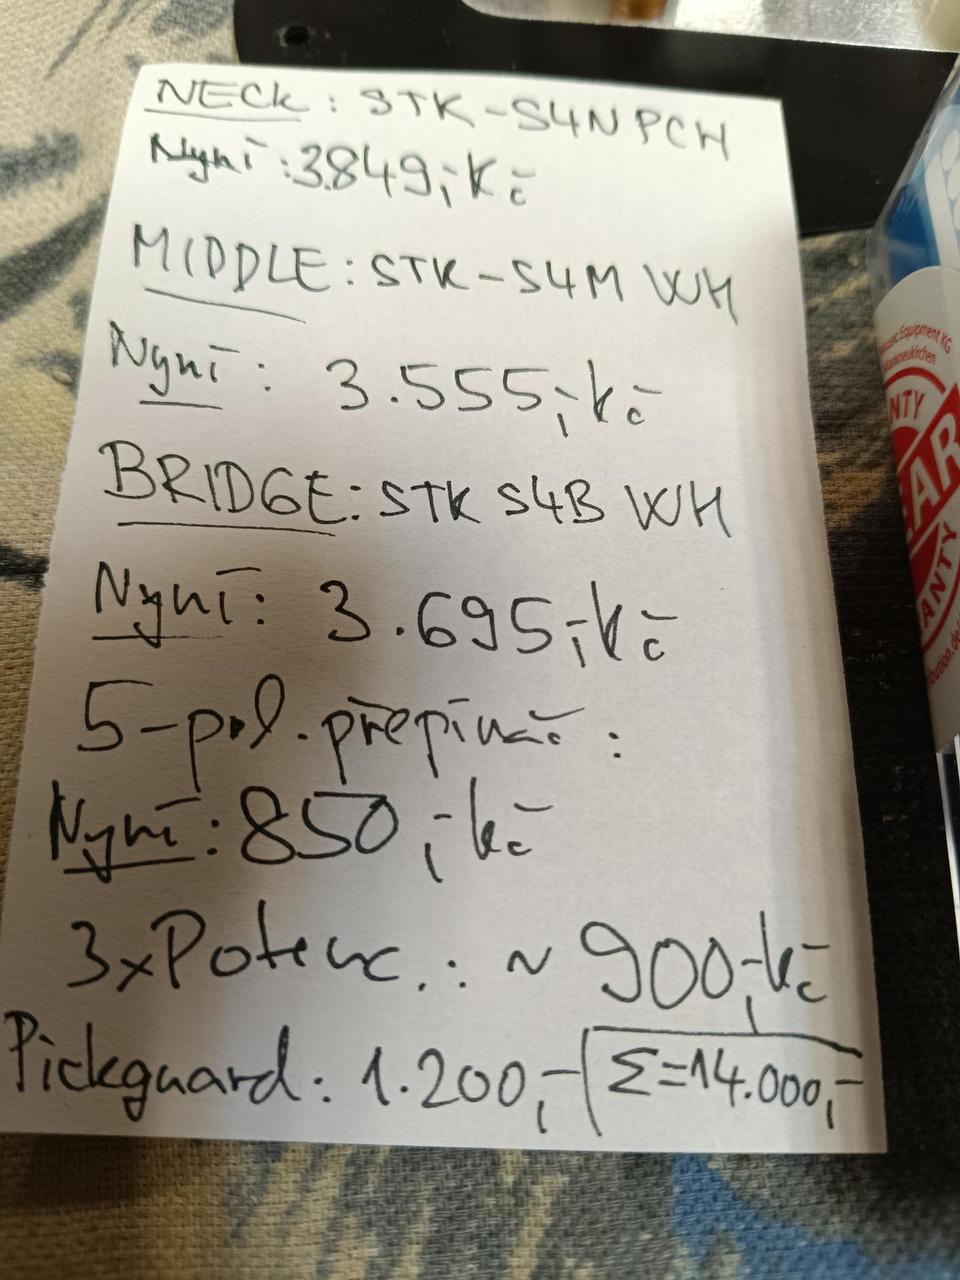 NECK: STK-S4N PCH
Nyní: 3.849,- Kč
MIDDLE: STK-S4M WH
Nyní: 3.555,- kč
BRIDGE: STK S4B WH
Nyní: 3.695,- kč
5-pol. přepínač:
Nyní: 850,- kč
3xPotenc.: ~ 900,- kč
Pickguard: 1.200,- Σ=14.000,-
Equipment KG
Markneukirchen
NTY
EAR
ANTY